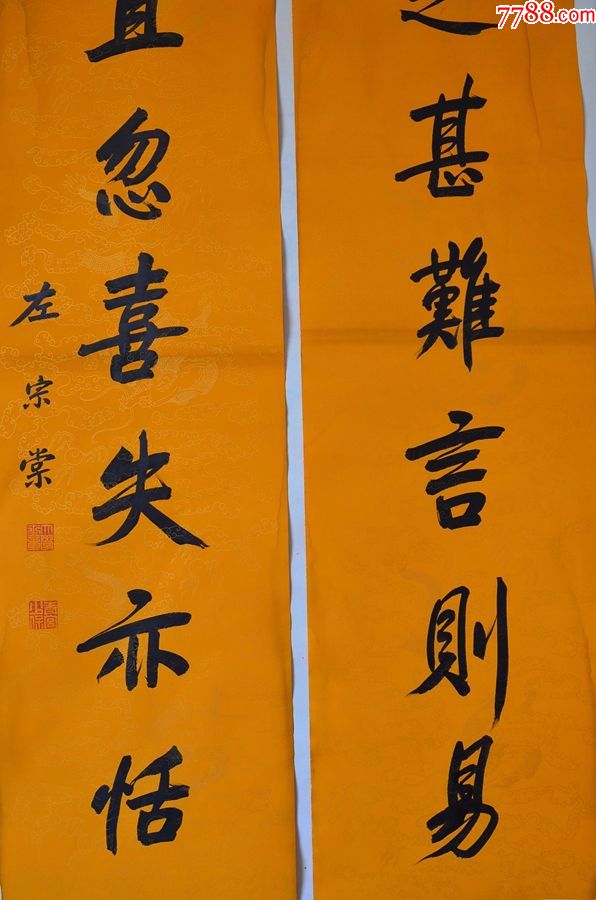 7788.com
之甚難言則易
忽喜失亦恬
左宗棠